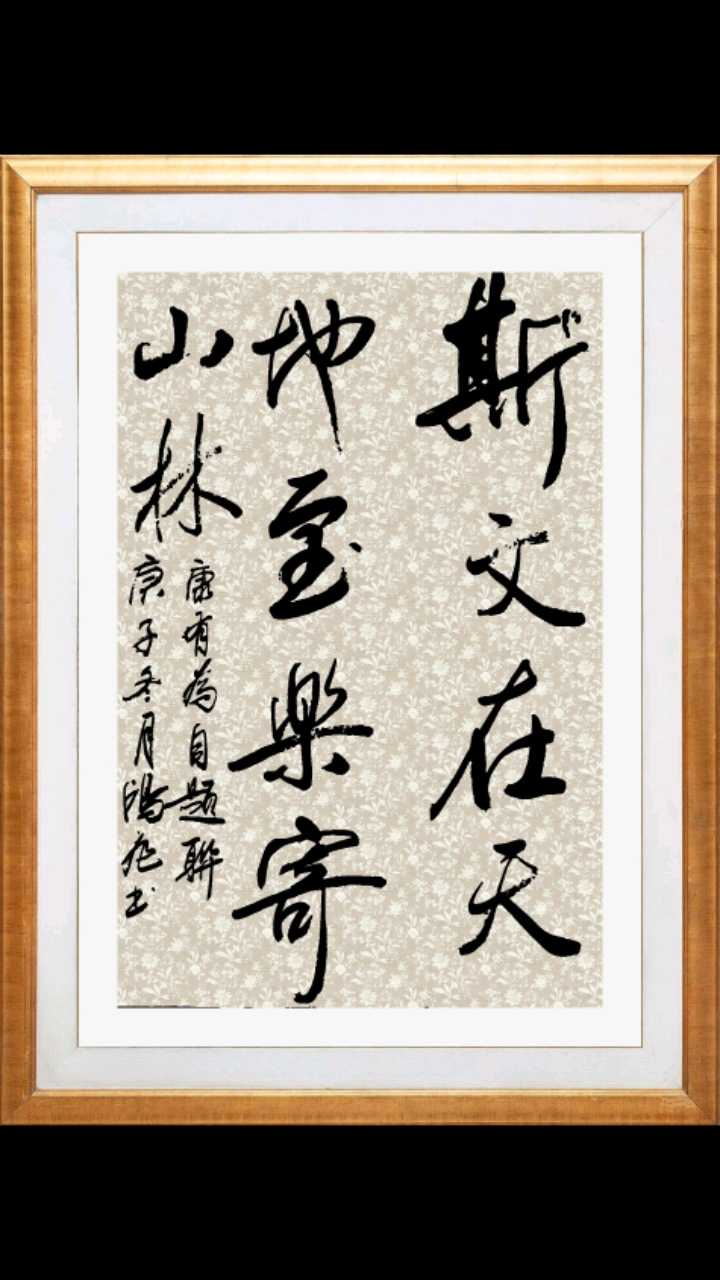 斯文在天
地至樂寄
山林
康有為自題聯
庚子冬月鴻書